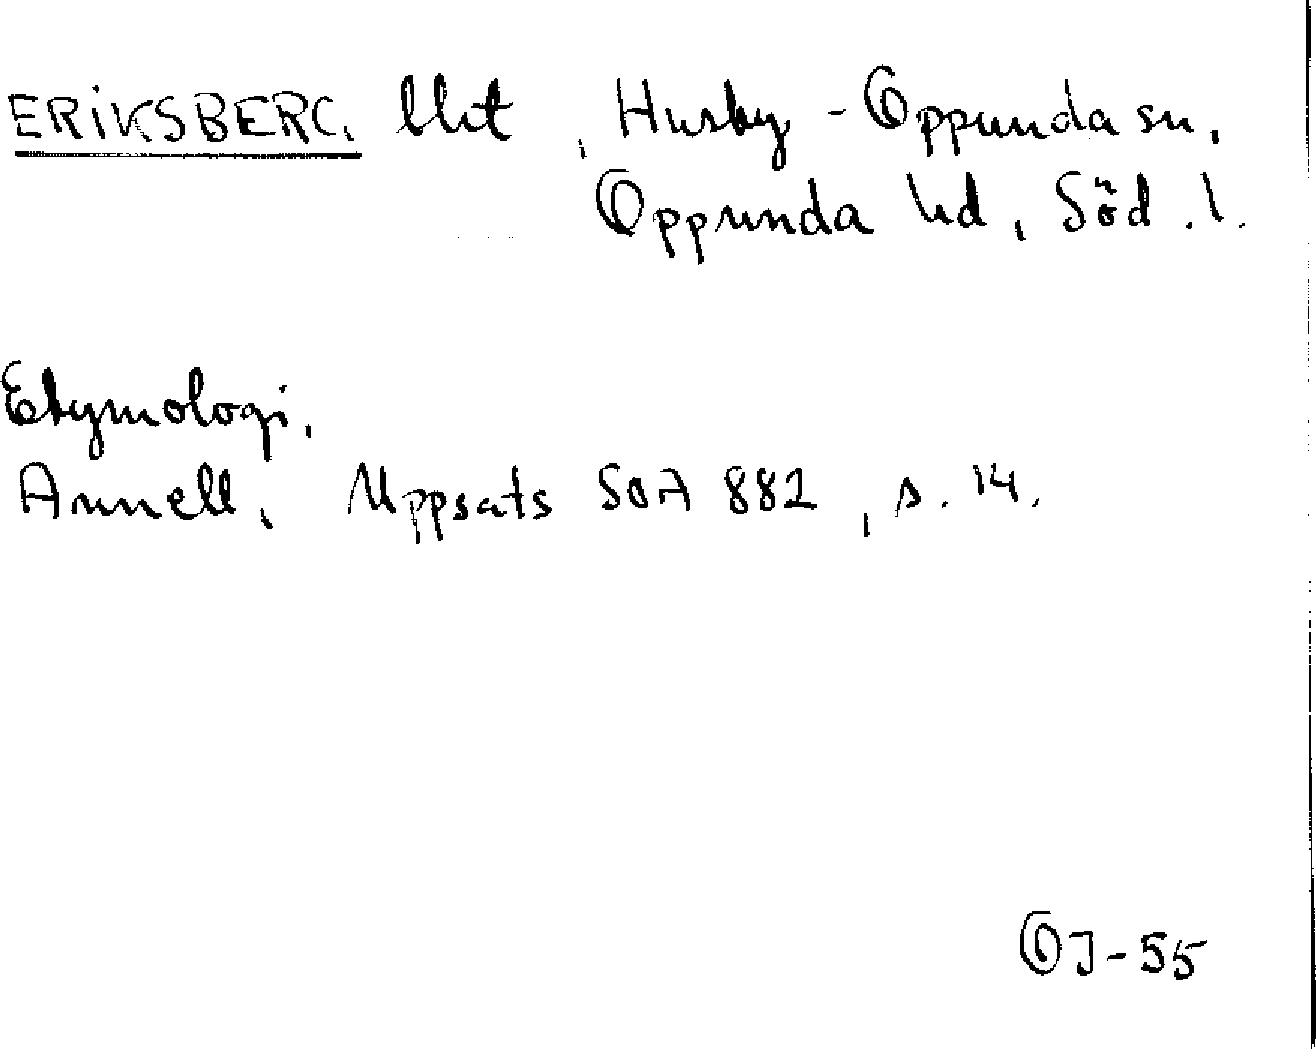 ERIKSBERG. lht, Husby-Oppunda sn,
Oppunda hd, Söd.l.
Etymologi.
Annell, Uppsats SOA 882, s. 14.
OJ-55